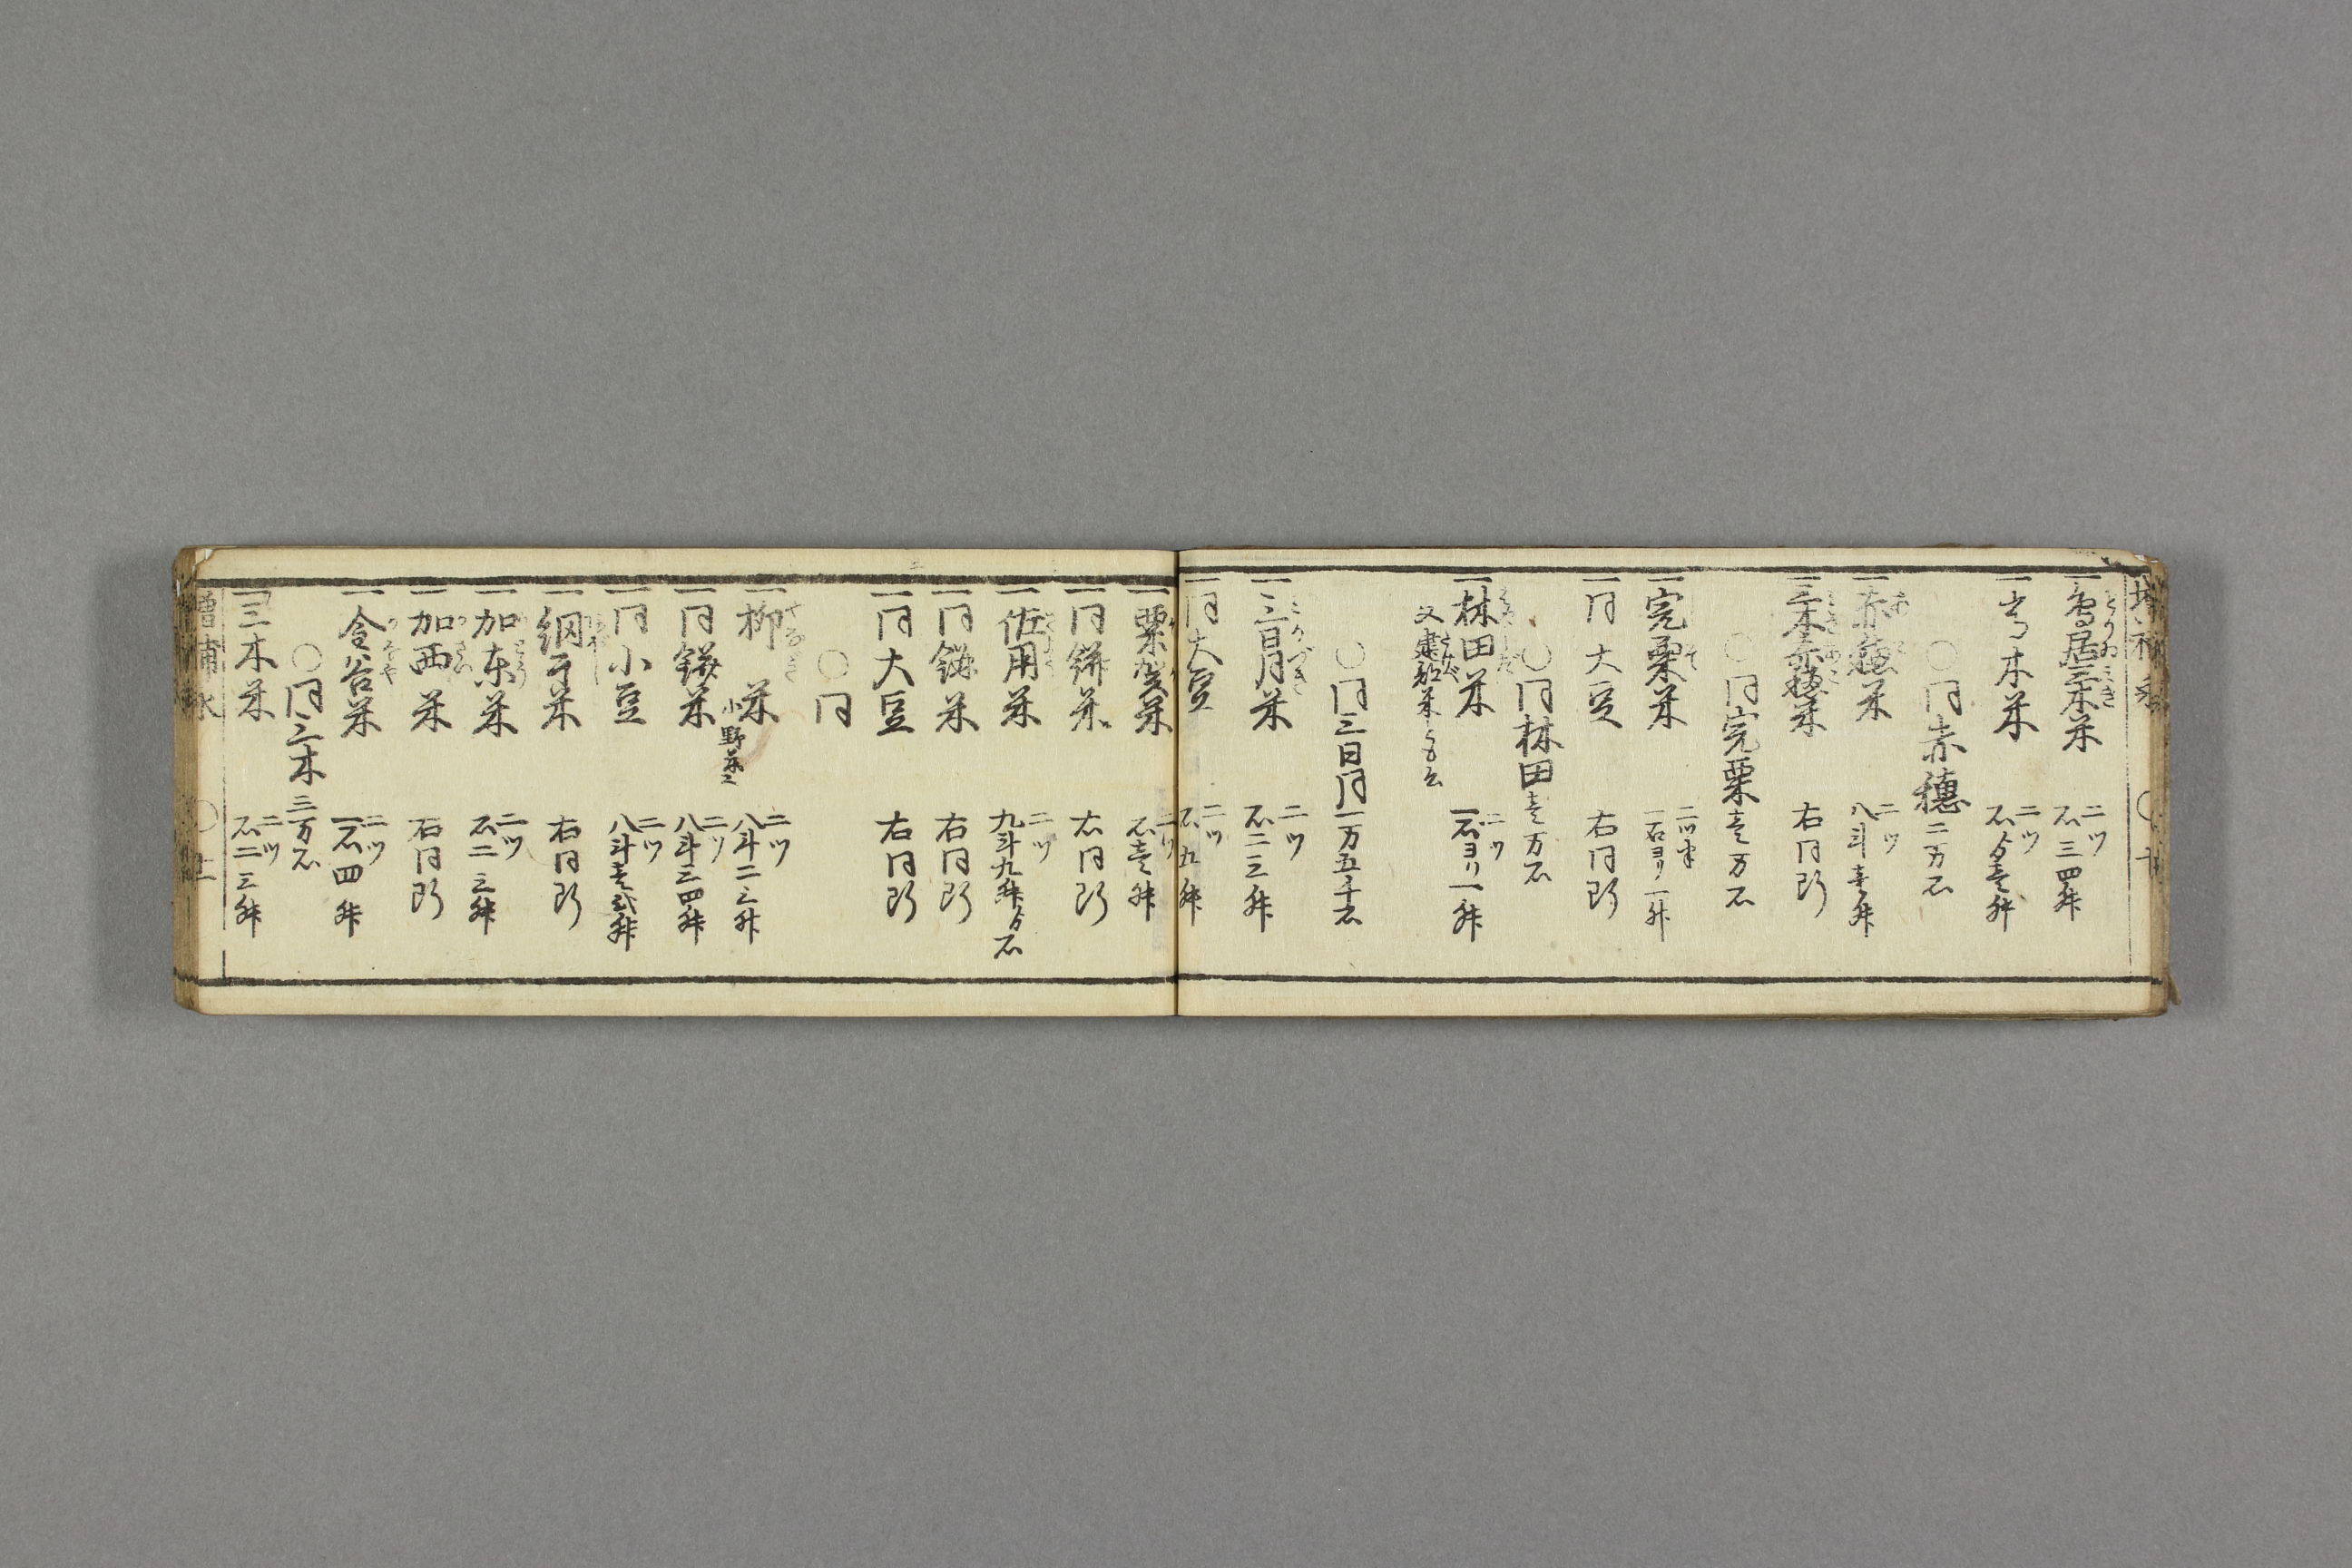 一鳥居三木米 二ツ 石三四升
一
木米 二ツ 石ゟ壱升
〇同赤穂 二万石
一赤穂米 二ツ 八斗
升
一三木赤穂米 右同断
〇同完粟 壱万石
一完粟米 二ツ半 一石ヨリ一升
一同大豆 右同断
〇同林田 壱万石
一林田米 二ツ 一石ヨリ一升
又建部米
〇同三日月 一万五千石
一三日月米 二ツ 石二三升
一同大豆 二ツ 石五升
一粟賀米 二ツ 石壱升
一同餅米 右同断
一佐用米 二ツ 九斗九升ゟ石
一同餅米 右同断
一同大豆 右同断
〇同
一柳米 小野米 二ツ 八斗二三升
一同餅米 二ツ 八斗三四升
一同小豆 二ツ 八斗壱弐升
一網干米 右同断
一加東米 二ツ 石二三升
一加西米 右同断
一金谷米 二ツ 一石四升
〇同三木 三万石
一三木米 二ツ 石二三升